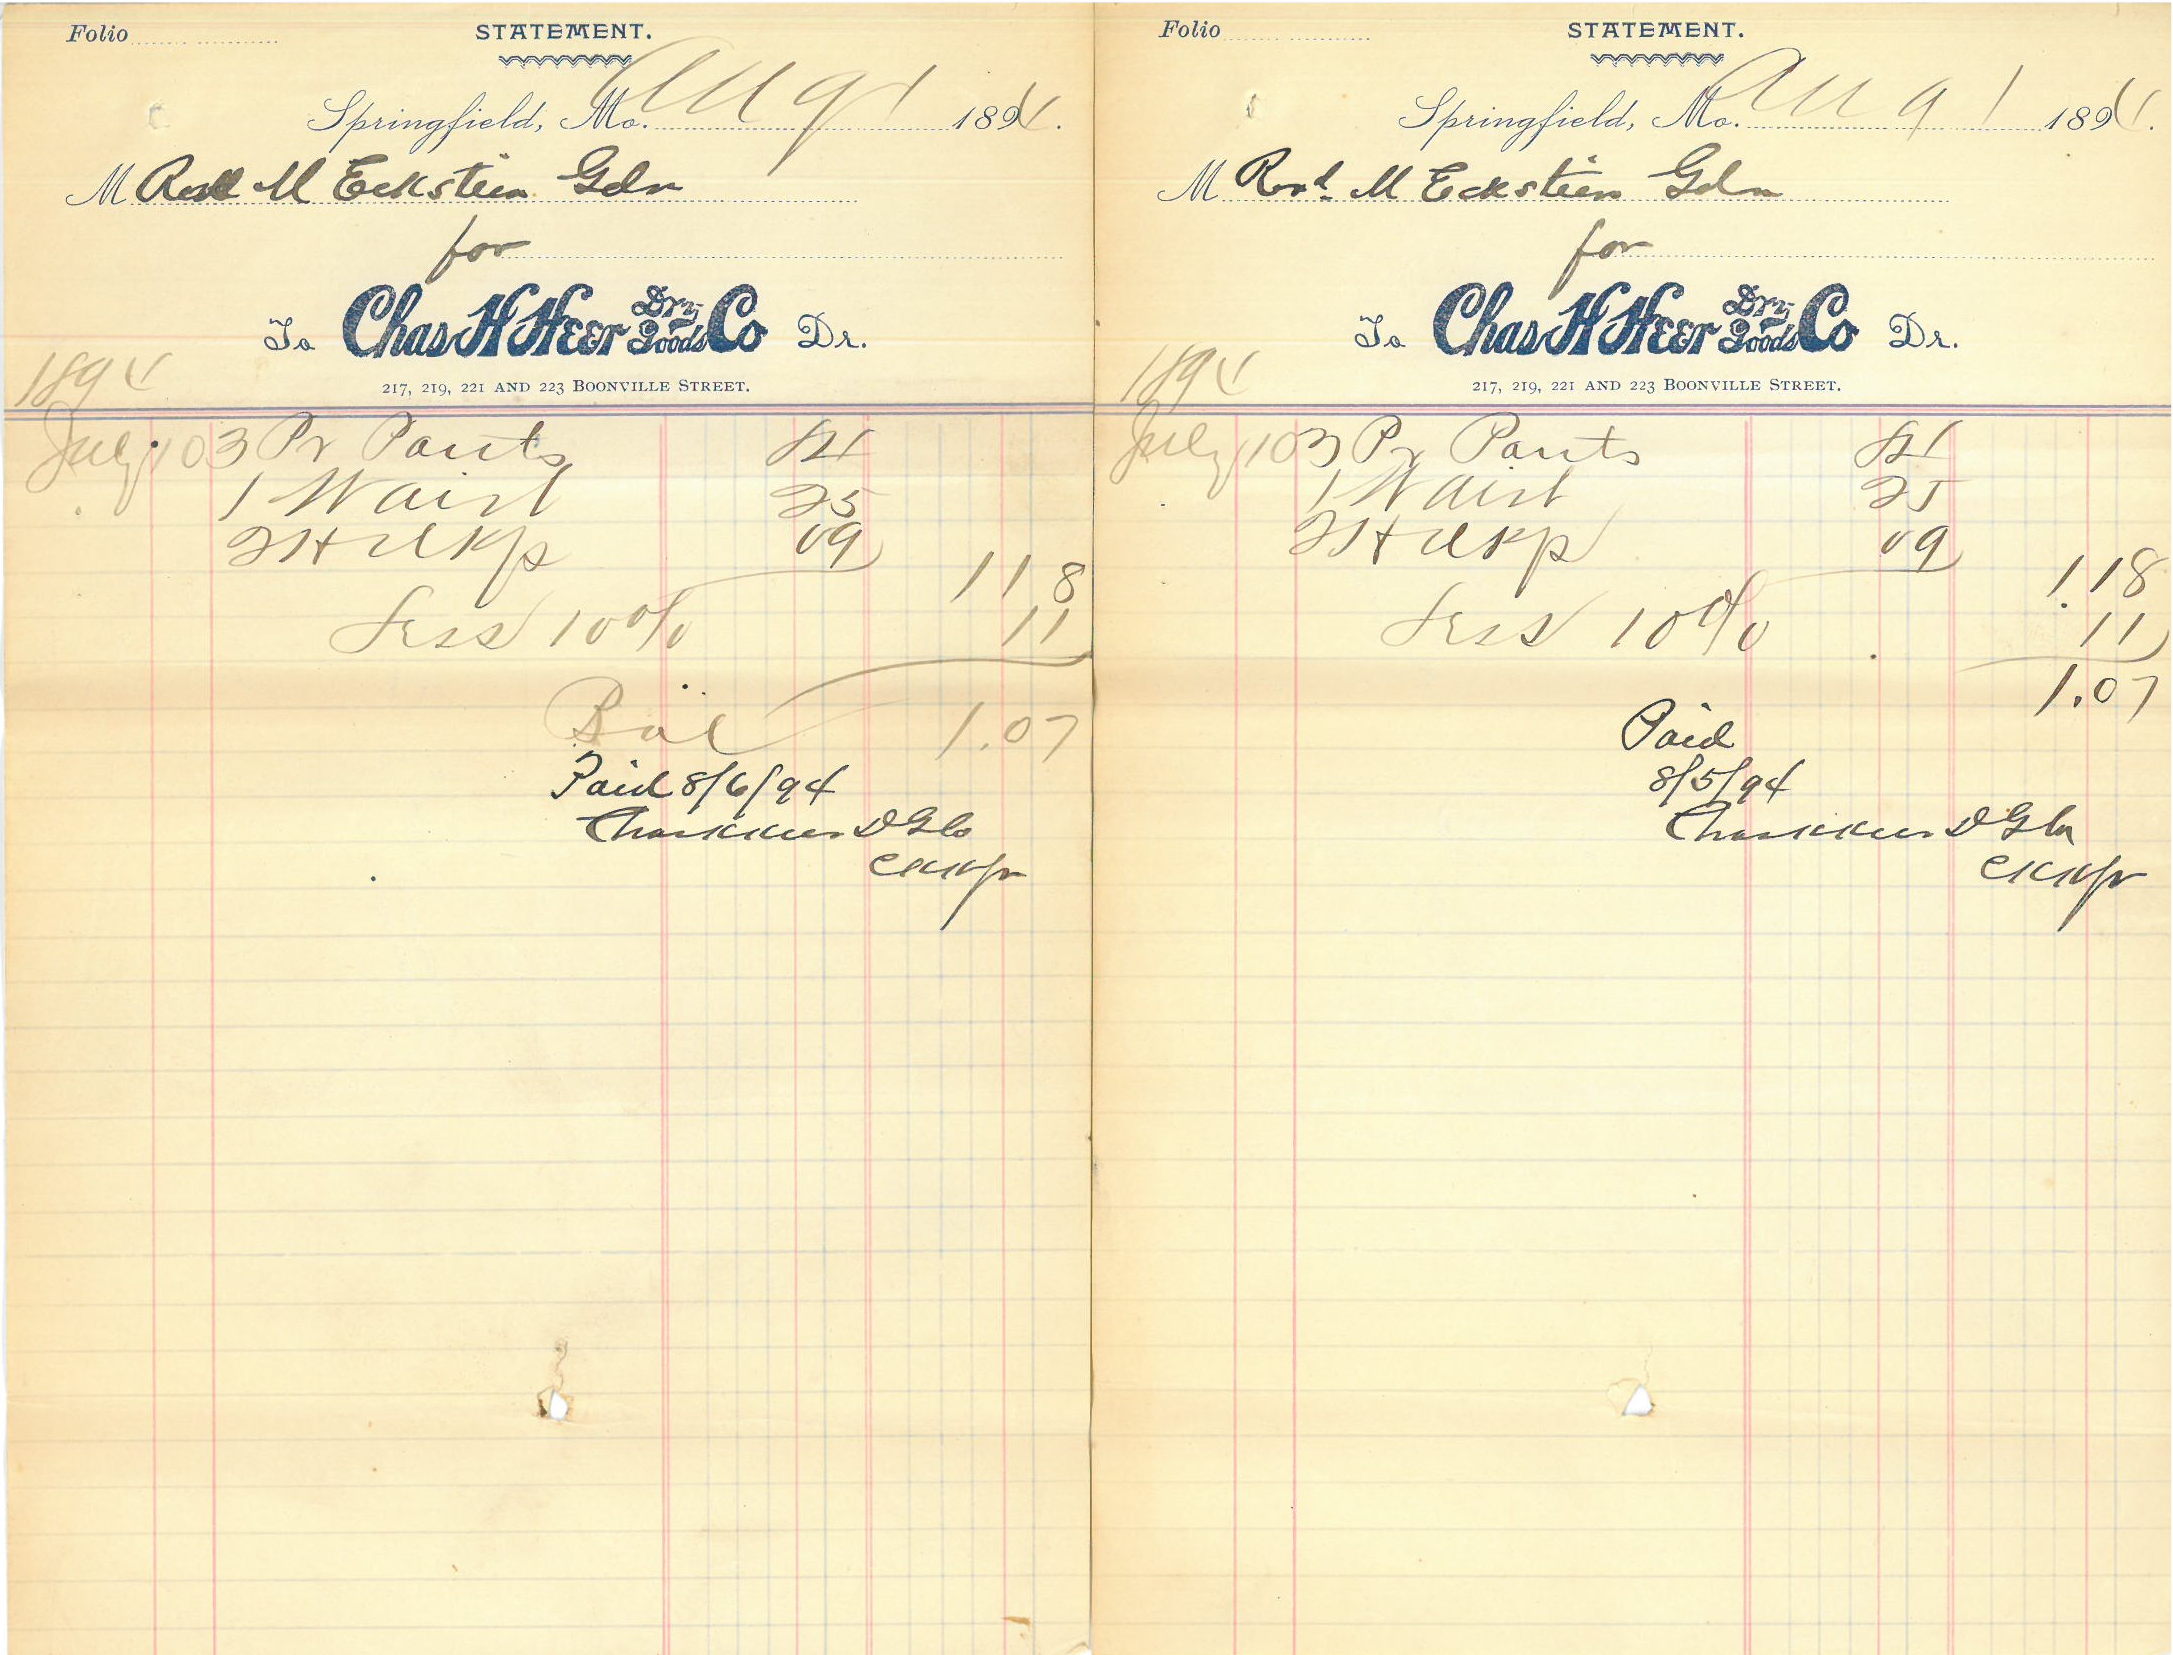 Folio
STATEMENT.
Springfield, Mo. Aug 1 1894.
M Revd M Eckstein Gdn
for
To Chas H Heer Dry Goods Co Dr.
217, 219, 221 AND 223 BOONVILLE STREET.
1894
July 10 3 Pr Pants 84
1 Waist 25
2 Hdkfs 09 1 18
Less 10% 11
Bal 1.07
Paid 8/6/94
Chas H Heer D G Co
Folio
STATEMENT.
Springfield, Mo. Aug 1 1894.
M Revd. M Eckstein Gdn
for
To Chas H Heer Dry Goods Co Dr.
217, 219, 221 AND 223 BOONVILLE STREET.
1894
July 10 3 Pr Pants 84
1 Waist 25
2 Hdkf 09 1.18
Less 10% 11
1.07
Paid
8/5/94
Chas H Heer D G Co